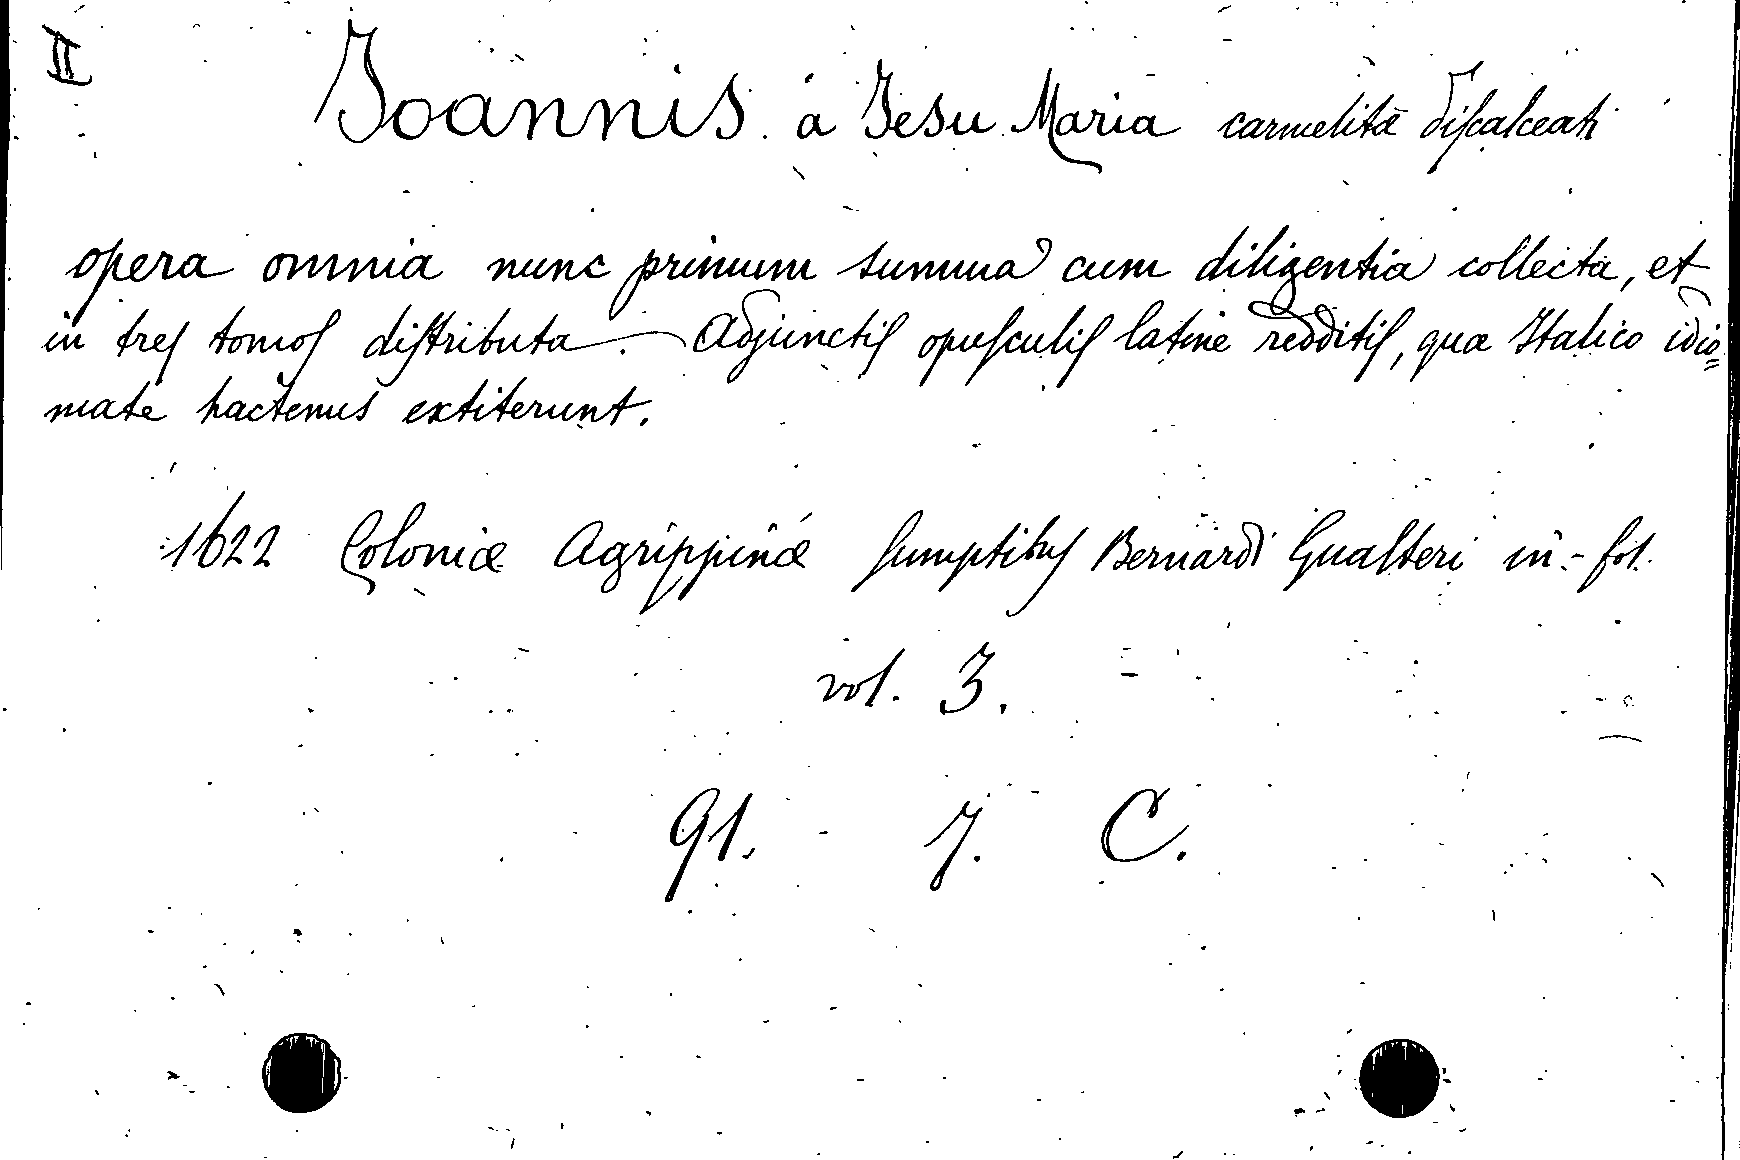 II
Joannis à Jesu Maria carmelitæ discalceati
opera omnia nunc primum summa cum diligentia collecta, et
in tres tomos distributa. Adjunctis opusculis latine redditis, quæ Italico idio=
mate hactenus extiterunt.
1622 Coloniæ Agrippinæ sumptibus Bernardi Gualteri in-fol.
vol. 3.
91. J. C.